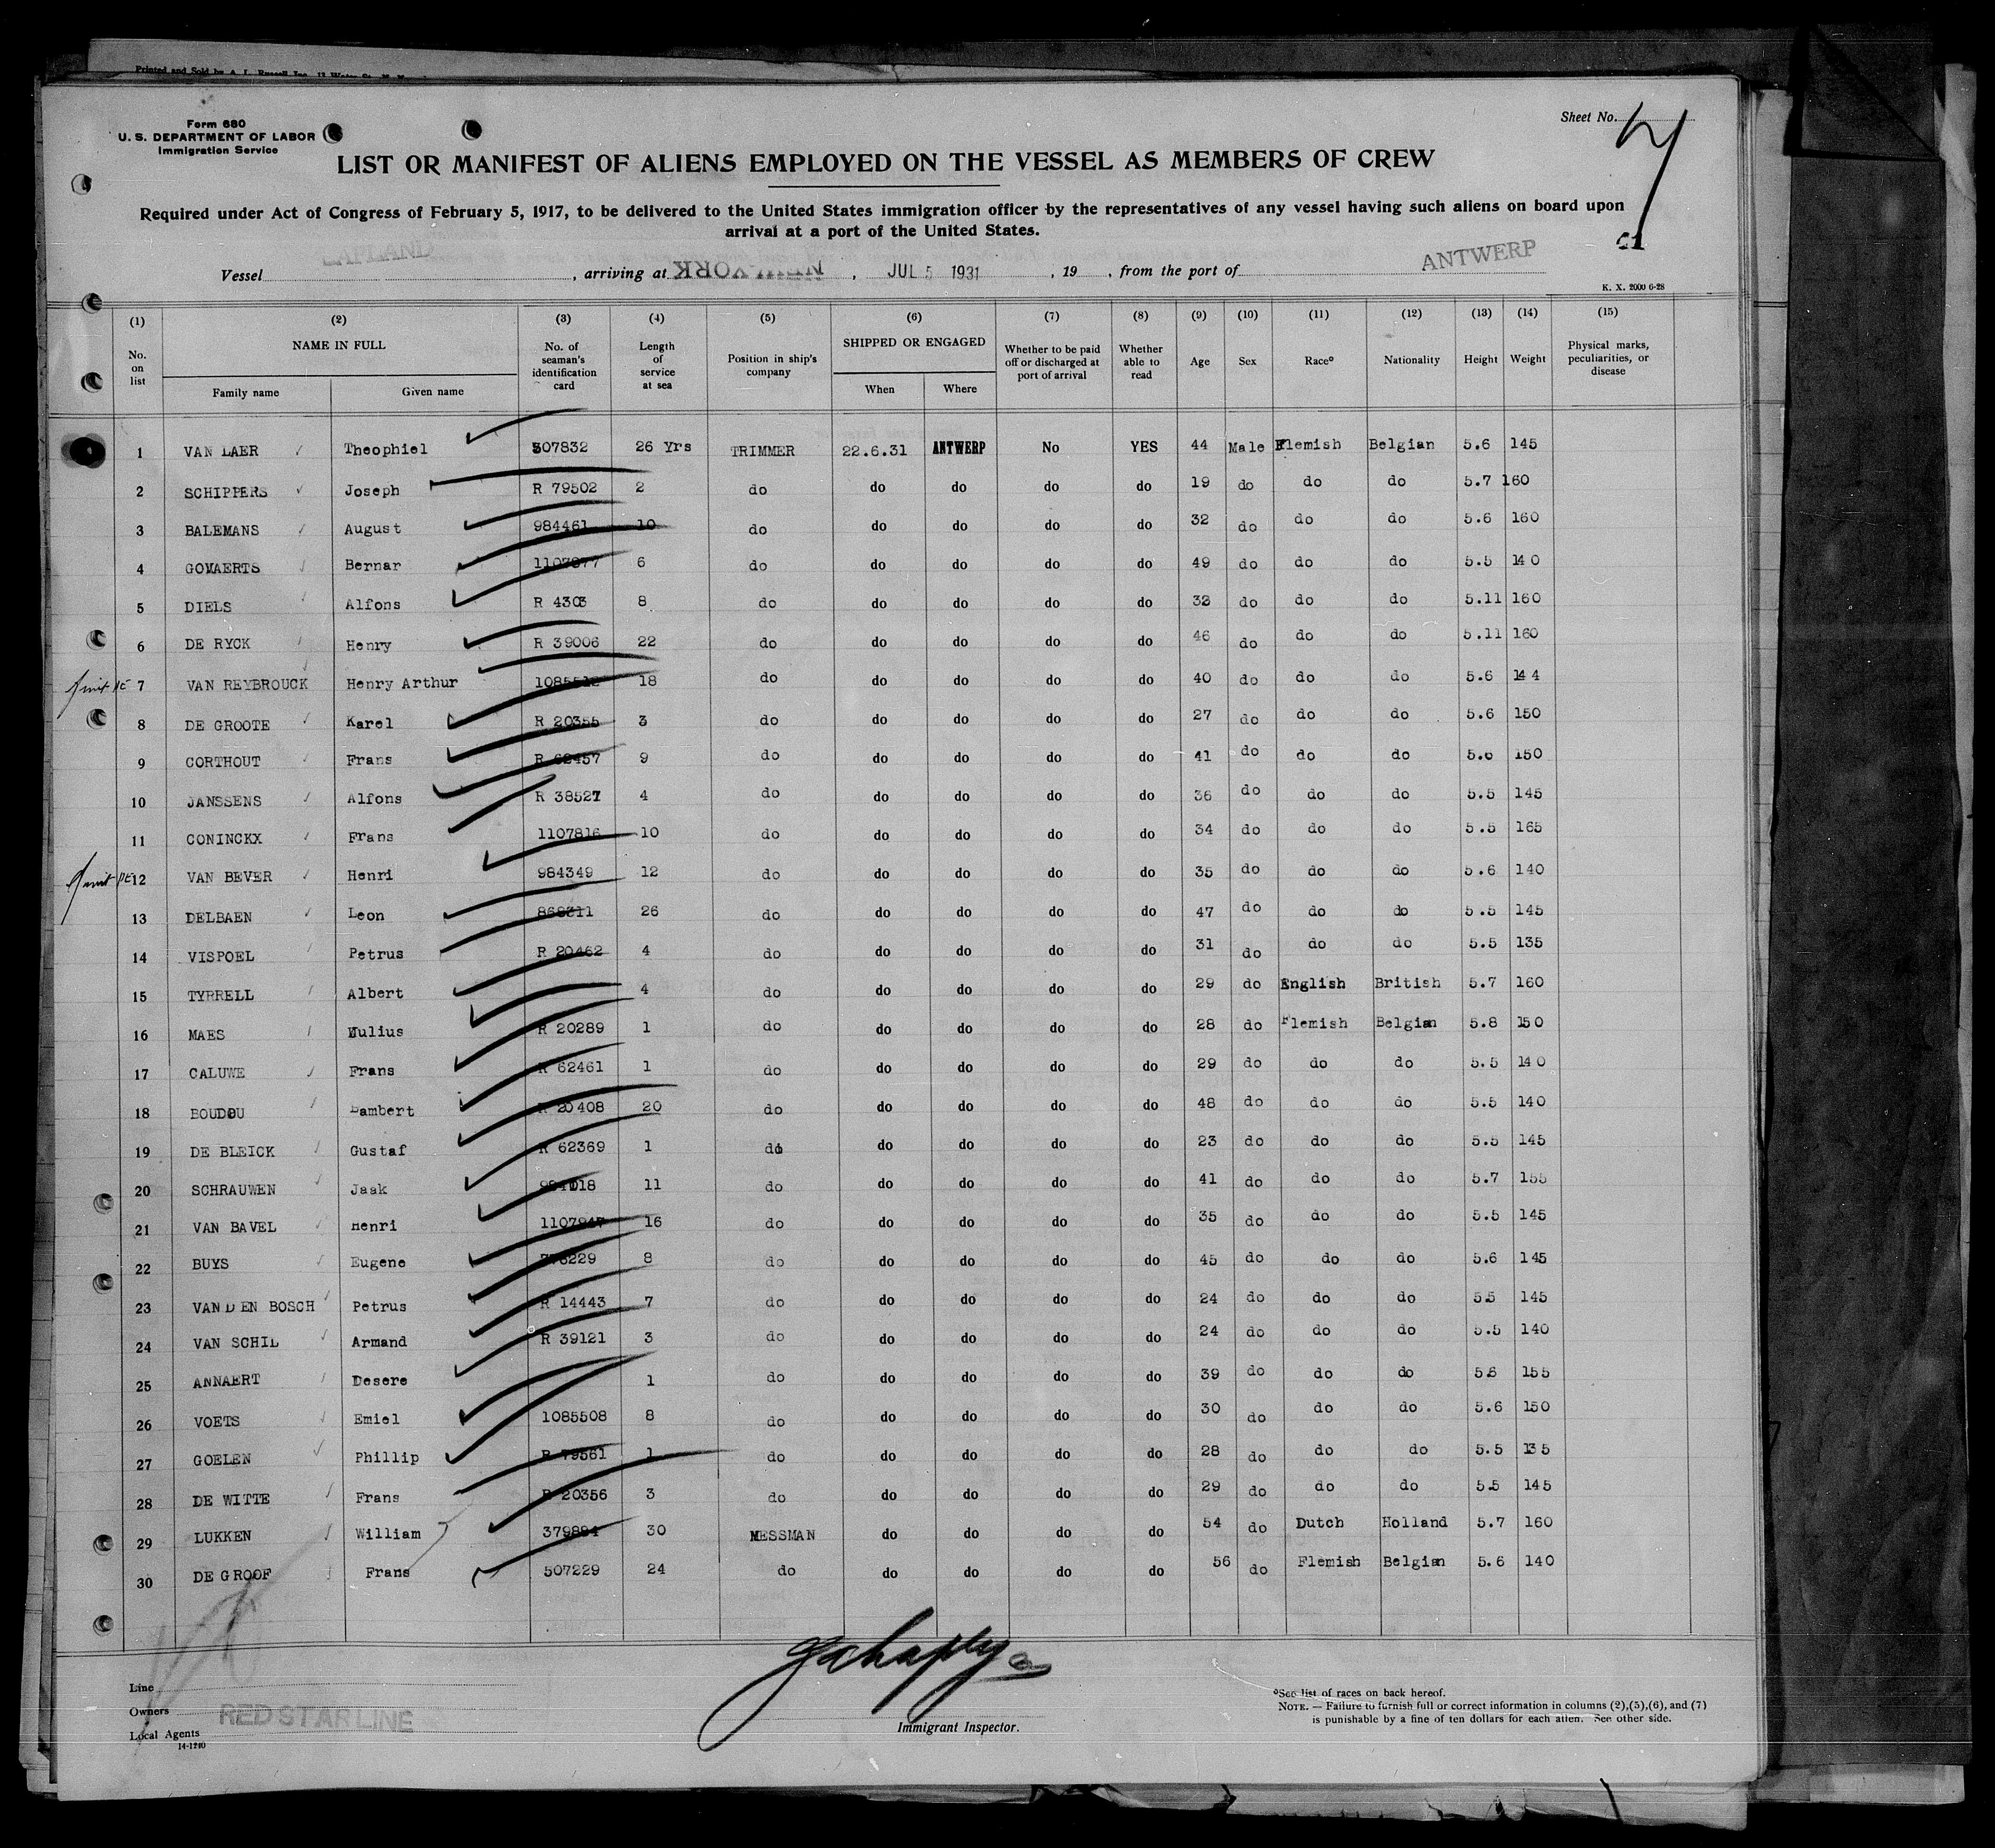 Printed and Sold by A. L. Russell, Inc.
Form 680
U. S. DEPARTMENT OF LABOR
Immigration Service
Sheet No. 7
LIST OR MANIFEST OF ALIENS EMPLOYED ON THE VESSEL AS MEMBERS OF CREW
Required under Act of Congress of February 5, 1917, to be delivered to the United States immigration officer by the representatives of any vessel having such aliens on board upon
arrival at a port of the United States.
Vessel LAPLAND, arriving at NEW YORK, JUL 5 1931, 19 , from the port of ANTWERP
K. X. 2000 6-28
(1) (2) (3) (4) (5) (6) (7) (8) (9) (10) (11) (12) (13) (14) (15)
No. on list NAME IN FULL Family name Given name No. of seaman's identification card Length of service at sea Position in ship's company SHIPPED OR ENGAGED When Where Whether to be paid off or discharged at port of arrival Whether able to read Age Sex Race° Nationality Height Weight Physical marks, peculiarities, or disease
1 VAN LAER Theophiel 507832 26 Yrs TRIMMER 22.6.31 ANTWERP No YES 44 Male Flemish Belgian 5.6 145
2 SCHIPPERS Joseph R 79502 2 do do do do do 19 do do do 5.7 160
3 BALEMANS August 984461 10 do do do do do 32 do do do 5.6 160
4 GOVAERTS Bernar 6 do do do do do 49 do do do 5.5 140
5 DIELS Alfons R 4303 8 do do do do do 32 do do do 5.11 160
6 DE RYCK Henry R 39006 22 do do do do do 46 do do do 5.11 160
7 VAN REYBROUCK Henry Arthur 1085512 18 do do do do do 40 do do do 5.6 144
8 DE GROOTE Karel R 20355 3 do do do do do 27 do do do 5.6 150
9 CORTHOUT Frans R 62457 9 do do do do do 41 do do do 5.6 150
10 JANSSENS Alfons R 38527 4 do do do do do 36 do do do 5.5 145
11 CONINCKX Frans 1107816 10 do do do do do 34 do do do 5.5 165
12 VAN BEVER Henri 984349 12 do do do do do 35 do do do 5.6 140
13 DELBAEN Leon 868311 26 do do do do do 47 do do do 5.5 145
14 VISPOEL Petrus R 20462 4 do do do do do 31 do do do 5.5 135
15 TYRRELL Albert 4 do do do do do 29 do English British 5.7 160
16 MAES Julius R 20289 1 do do do do do 28 do Flemish Belgian 5.8 150
17 CALUWE Frans R 62461 1 do do do do do 29 do do do 5.5 140
18 BOUDOU Lambert R 20408 20 do do do do do 48 do do do 5.5 140
19 DE BLEICK Gustaf R 62369 1 do do do do do 23 do do do 5.5 145
20 SCHRAUWEN Jaak 11 do do do do do 41 do do do 5.7 155
21 VAN BAVEL Henri 1107947 16 do do do do do 35 do do do 5.5 145
22 BUYS Eugene 8 do do do do do 45 do do do 5.6 145
23 VAN DEN BOSCH Petrus R 14443 7 do do do do do 24 do do do 5.5 145
24 VAN SCHIL Armand R 39121 3 do do do do do 24 do do do 5.5 140
25 ANNAERT Desere 1 do do do do do 39 do do do 5.6 155
26 VOETS Emiel 1085508 8 do do do do do 30 do do do 5.6 150
27 GOELEN Phillip R 79561 1 do do do do do 28 do do do 5.5 135
28 DE WITTE Frans R 20356 3 do do do do do 29 do do do 5.5 145
29 LUKKEN William 379884 30 MESSMAN do do do do 54 do Dutch Holland 5.7 160
30 DE GROOF Frans 507229 24 do do do do do 56 do Flemish Belgian 5.6 140
Line
Owners RED STAR LINE
Local Agents
14-1240
Immigrant Inspector.
°See list of races on back hereof.
NOTE. — Failure to furnish full or correct information in columns (2),(5),(6), and (7)
is punishable by a fine of ten dollars for each alien. See other side.